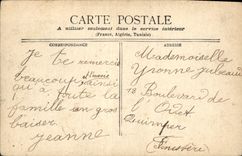 CARTE POSTALE
A utiliser seulement dans le service intérieur
(France, Algérie, Tunisie)
CORRESPONDANCE
ADRESSE
Je te remercie
beaucoup ainsi
qu'à toute la
famille un gros
baiser
Jeanne
Mademoiselle
Yvonne
18 Boulevard de
l'Odet
Quimper
Finistère